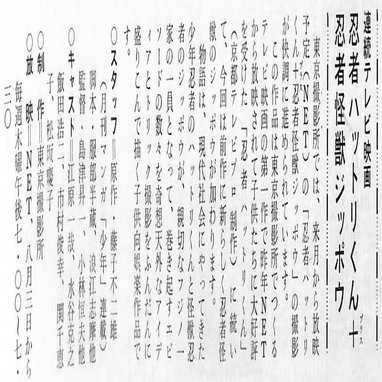 連続テレビ映画
忍者ハットリくん＋プラス
忍者怪獣ジッポウ
東京撮影所では、来月から放映
予定（NET）の「忍者ハットリ
くん＋忍者怪獣ジッポウ」の撮影
が快調に進められています。
この作品は東京撮影所でつくる
テレビ映画の第一作で昨年NET
から放映されて子供たちに大好評
を受けた「忍者ハットリくん」
（京都テレビプロ制作）に続い
て、今回は前作に新らしく忍者怪
獣のジッポウが加わります。
物語は、現代社会にやってきた
少年忍者のハットリくんと怪獣忍
者のジッポウが、親切なケンイチ
家の一員となって、巻き起すエピ
ソードの数々を奇想天外なアイデ
ィアとトリック撮影をふんだんに
盛りこんで描く子供向娯楽作品で
す。
○スタッフ＝原作・藤子不二雄
（月刊マンガ「少年」連載）
脚本・服部半蔵 浪江志摩他
監督・島津昇一 小林恒夫他
○キャスト＝江原一哉 水谷克之
飯田浩二 市村俊幸 関千恵
子 松坂慶子
○制作＝東京撮影所
○放映＝NET 八月三日から
毎週木曜午後七・〇〇〜七・
三〇